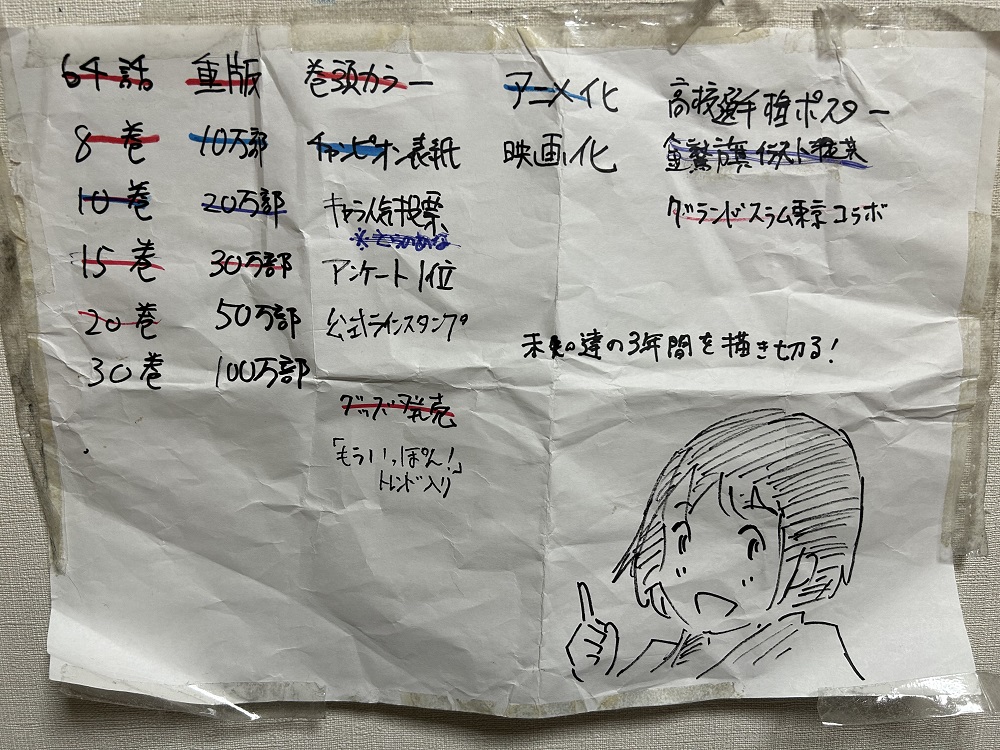 64話
8巻
10巻
15巻
20巻
30巻
重版
10万部
20万部
30万部
50万部
100万部
巻頭カラー
チャンピオン表紙
キャラ人気投票
※とらのあな
アンケート1位
公式ラインスタンプ
グッズ発売
「もういっぽん!」
トレンド入り
アニメ化
映画化
高校選手権ポスター
金鷲旗イラスト提供
グランドスラム東京コラボ
未知達の3年間を描き切る!